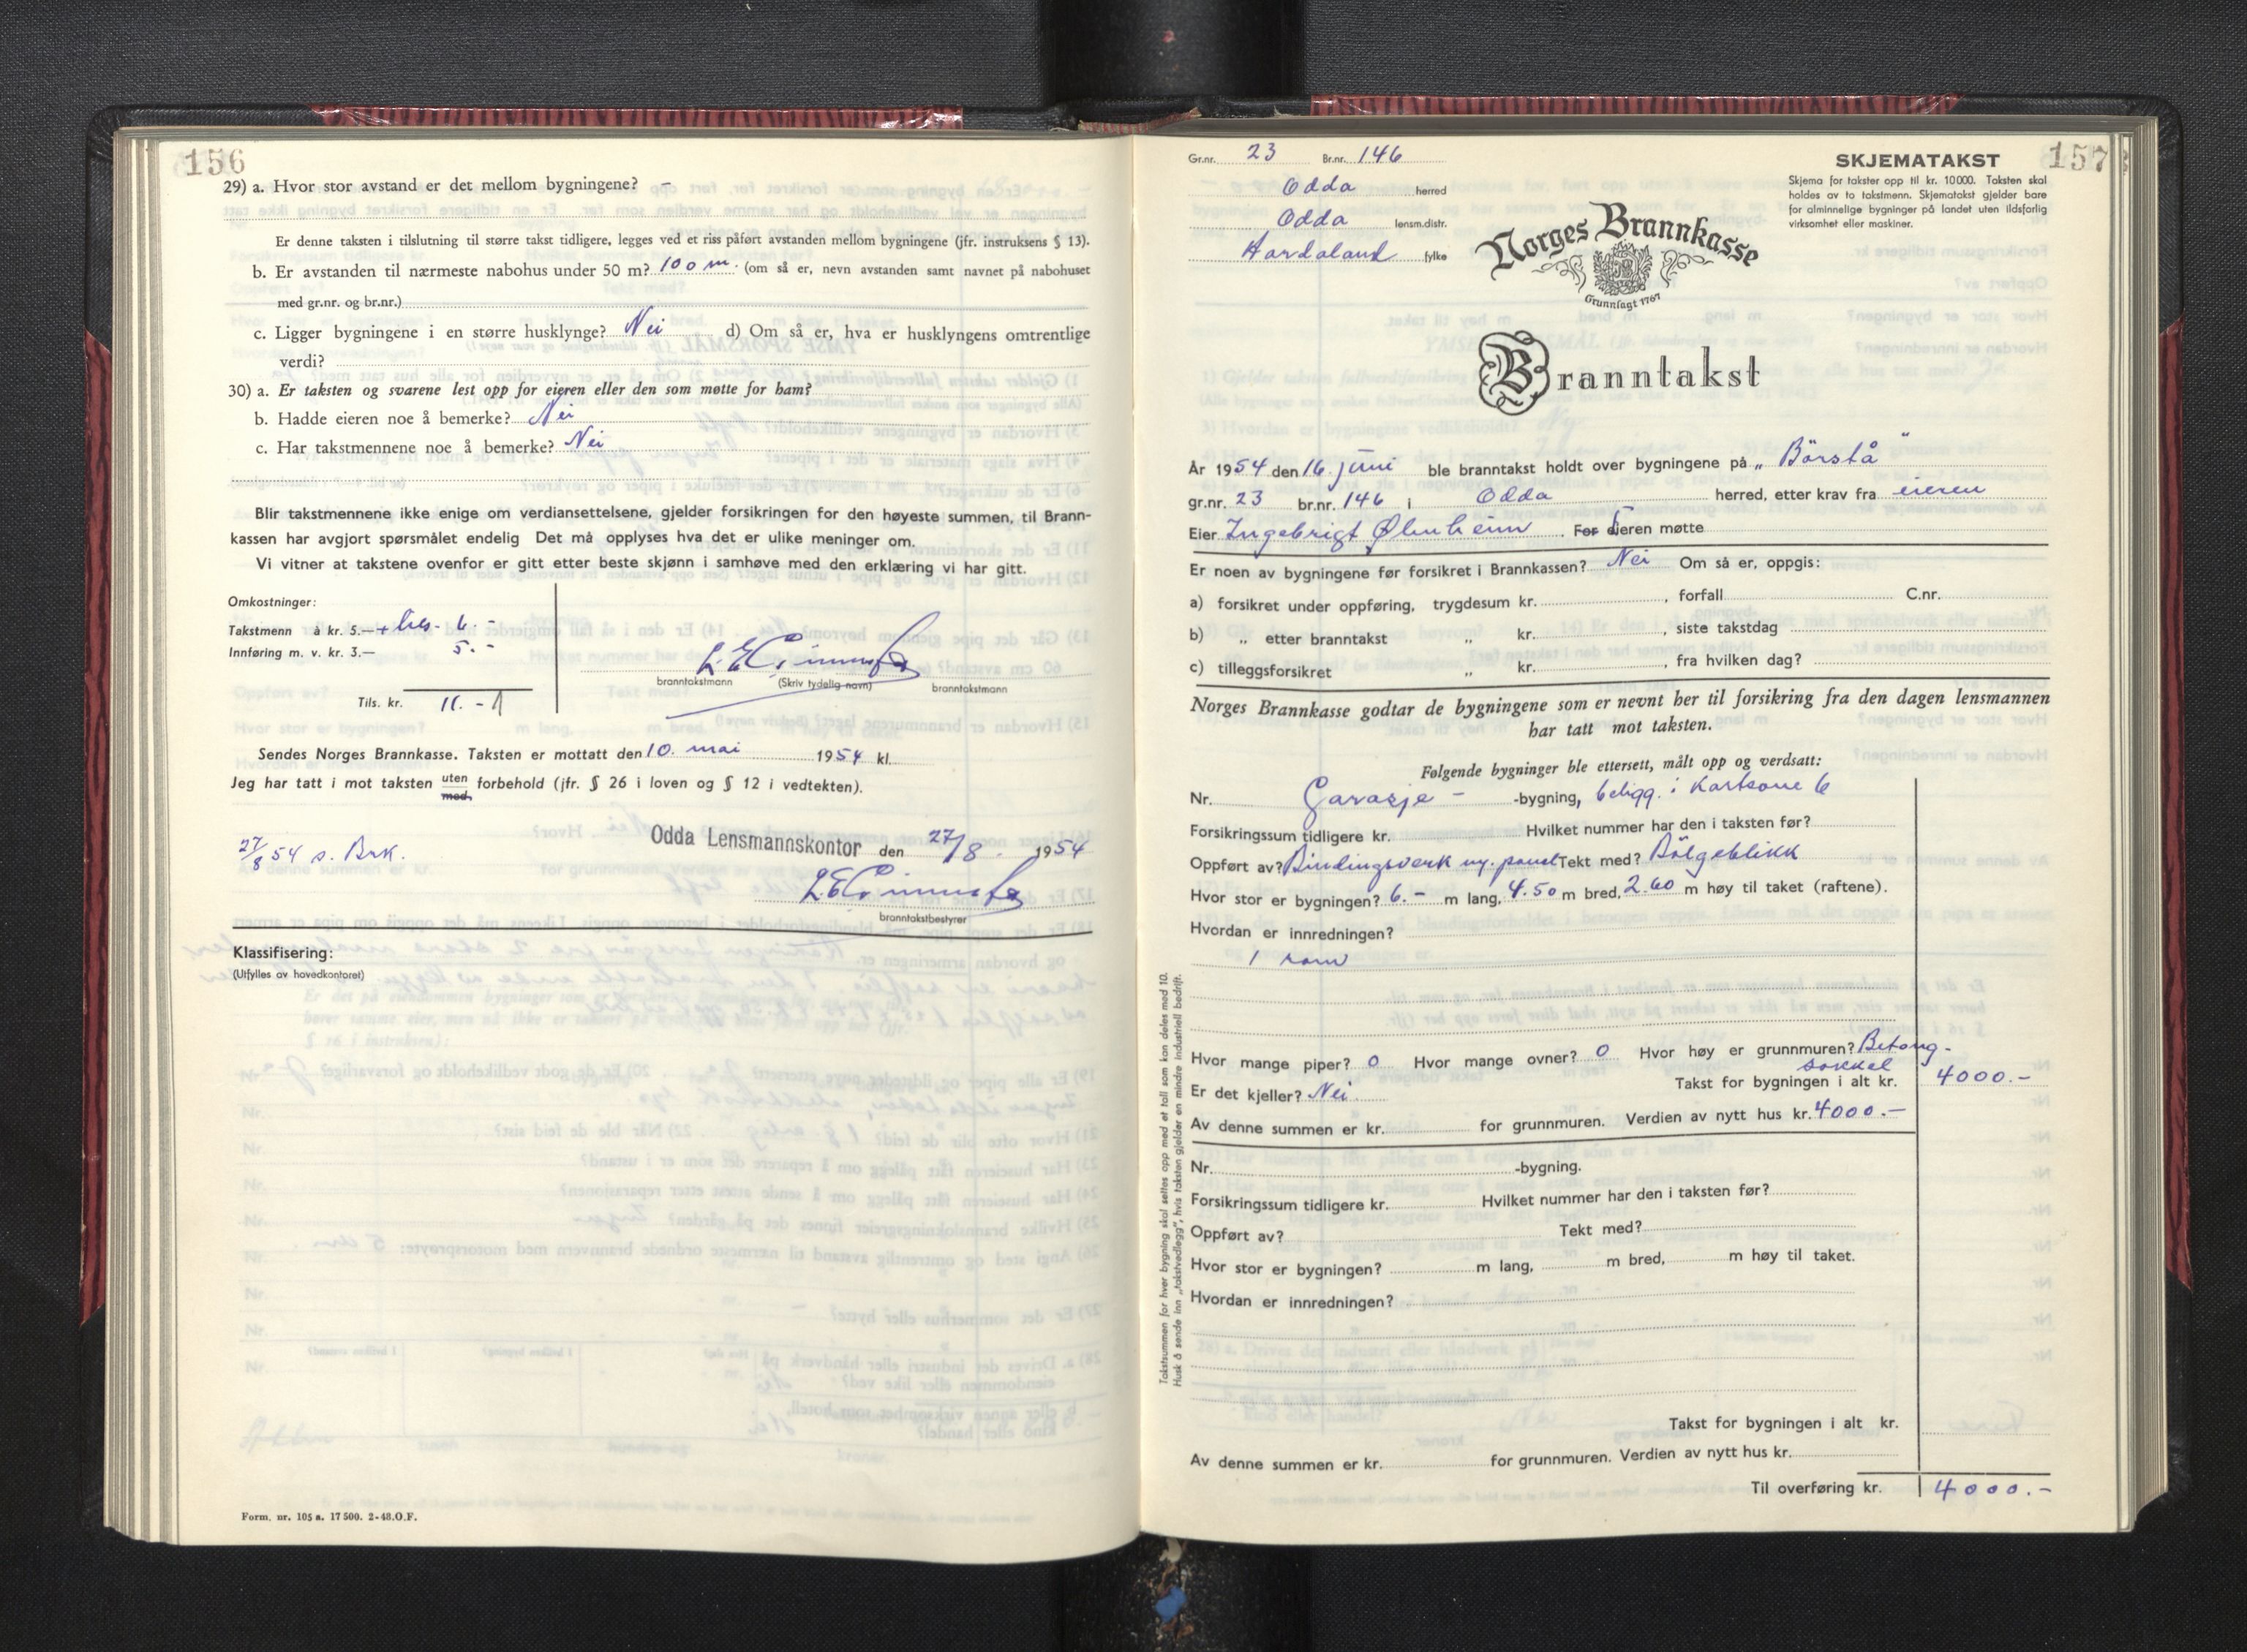 156
29) a. Hvor stor avstand er det mellom bygningene? –
Er denne taksten i tilslutning til større takst tidligere, legges ved et riss påført avstanden mellom bygningene (jfr. instruksens § 13).
b. Er avstanden til nærmeste nabohus under 50 m? 100 m. (om så er, nevn avstanden samt navnet på nabohuset
med gr.nr. og br.nr.)
c. Ligger bygningene i en større husklynge? Nei d) Om så er, hva er husklyngens omtrentlige
verdi?
30) a. Er taksten og svarene lest opp for eieren eller den som møtte for ham?
b. Hadde eieren noe å bemerke? Nei
c. Har takstmennene noe å bemerke? Nei
Blir takstmennene ikke enige om verdiansettelsene, gjelder forsikringen for den høyeste summen, til Brann-
kassen har avgjort spørsmålet endelig Det må opplyses hva det er ulike meninger om.
Vi vitner at takstene ovenfor er gitt etter beste skjønn i samhøve med den erklæring vi har gitt.
Omkostninger:
Takstmenn à kr. 5.— + 6. -
Innføring m. v. kr. 3.— 5. -
Tils. kr. 11. -
branntakstmann (Skriv tydelig navn) branntakstmann
Sendes Norges Brannkasse. Taksten er mottatt den 10. mai 1954 kl.
Jeg har tatt i mot taksten uten forbehold (jfr. § 26 i loven og § 12 i vedtekten).
med
27/8 54 s. Brk.
Odda Lensmannskontor den 27/8. 1954
branntakstbestyrer
Klassifisering:
(Utfylles av hovedkontoret)
Form. nr. 105 a. 17 500. 2-48. O.F.
157
Gr.nr. 23 Br.nr. 146
Odda herred
Odda lensm.distr.
Hordaland fylke
SKJEMATAKST
Skjema for takster opp til kr. 10 000. Taksten skal
holdes av to takstmenn. Skjematakst gjelder bare
for alminnelige bygninger på landet uten ildsfarlig
virksomhet eller maskiner.
Norges Brannkasse
Grunnlagt 1767
Branntakst
År 1954 den 16. juni ble branntakst holdt over bygningene på „ Börstå "
gr.nr. 23 br.nr. 146 i Odda herred, etter krav fra eieren
Eier Ingebrigt Ølmheim. For Eieren møtte
Er noen av bygningene før forsikret i Brannkassen? Nei Om så er, oppgis:
a) forsikret under oppføring, trygdesum kr. , forfall C.nr.
b) „ etter branntakst „ kr. , siste takstdag
c) tilleggsforsikret „ kr. , fra hvilken dag?
Norges Brannkasse godtar de bygningene som er nevnt her til forsikring fra den dagen lensmannen
har tatt mot taksten.
Følgende bygninger ble ettersett, målt opp og verdsatt:
Nr. Garasje – -bygning, beligg. i Kartsone 6
Forsikringssum tidligere kr. Hvilket nummer har den i taksten før?
Oppført av? Bindingsverk m. panel Tekt med? Bölgeblikk
Hvor stor er bygningen? 6. - m lang, 4.50 m bred, 2.60 m høy til taket (raftene).
Hvordan er innredningen?
1 rom
Hvor mange piper? 0 Hvor mange ovner? 0 Hvor høy er grunnmuren? Betong-
sokkel
Er det kjeller? Nei. Takst for bygningen i alt kr. 4000.-
Av denne summen er kr. for grunnmuren. Verdien av nytt hus kr. 4000.-
Nr. -bygning.
Forsikringssum tidligere kr. Hvilket nummer har den i taksten før?
Oppført av? Tekt med?
Hvor stor er bygningen? m lang, m bred, m høy til taket.
Hvordan er innredningen?
Takst for bygningen i alt kr.
Av denne summen er kr. for grunnmuren. Verdien av nytt hus kr.
Til overføring kr. 4000.-
Takstsummen for hver bygning skal settes opp med et tall som kan deles med 10.
Husk å sende inn „takstvedlegg", hvis taksten gjelder en mindre industriell bedrift.